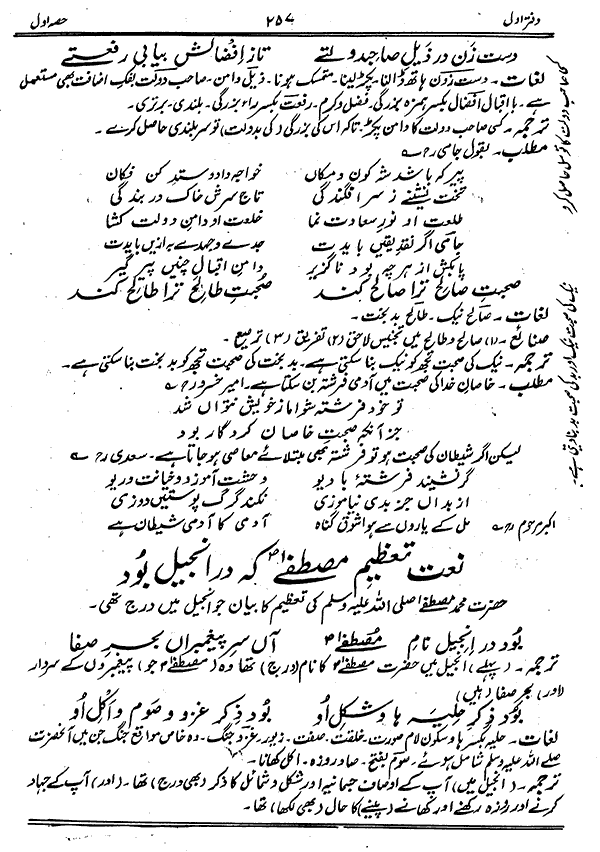 دفتر اول ۲۵۷ حصہ اول
دست زن در ذیلِ صاحبدولتے تاز اِفضالش بیابی رفعتے
لغات۔ دست زدن ہاتھ ڈالنا۔ پکڑ لینا۔ متمسک ہونا۔ ذیل دامن۔ صاحب دولت بفکِ اضافت بھی مستعمل
ہے۔ با اقبال اِفضال بکسر ہمزہ بزرگی۔ فضل و کرم۔ رِفعت بکسر راء بزرگی۔ بلندی۔ برتری۔
ترجمہ۔ کسی صاحب دولت کا دامن پکڑ۔ تاکہ اس کی بزرگی (کی بدولت) تو سربلندی حاصل کرے۔
مطلب۔ بقول جامیؒ
پیر کہ باشد شہ کون و مکاں خواجہ داد و ستدِ کن فکان
تخت نشینے ز سر افگندگی تاج سرش خاک درِ بندگی
طلعت او نورِ سعادت نما خلعت او دامنِ دولت کشا
جامی اگر نقدِ یقیں بایدت جدے و جہدے بہ ازیں بایدت
پا بکش از ہر چہ بود ناگزیر دامنِ اقبالِ چنیں پیر گیر
صحبتِ صالح ترا صالح کند صحبتِ طالح ترا طالح کند
لغات۔ صالح نیک۔ طالح بد بخت۔
صنائع۔ (۱) صالح و طالح میں تجنیس لاحق (۲) تفریق (۳) ترصیع۔
ترجمہ۔ نیک کی صحبت تجھ کو نیک بنا سکتی ہے۔ بد بخت کی صحبت تجھ کو بد بخت بنا سکتی ہے۔
مطلب۔ خاصانِ خدا کی صحبت میں آدمی فرشتہ بن سکتا ہے۔ امیر خسروؒ
تو خود فرشتہ شو اما ز خویش نتواں شد
جز آنکہ صحبت خاصان کردگار بود
لیکن اگر شیطان کی صحبت ہو تو فرشتہ بھی مبتلائے معاصی ہو جاتا ہے۔ سعدیؒ
گر نشیند فرشتۂ با دیو وحشت آموزد و خیانت و ریو
از بداں جز بدی نیاموزی نکند گرگ پوستیں دوزی
اکبر مرحوم مل کے یاروں سے ہوا شوقِ گناہ آدمی کا آدمی شیطان ہے
نعت تعظیم مصطفےٰؐ کہ در انجیل بود
حضرت محمد مصطفےٰ صلی اللہ علیہ وسلم کی تعظیم کا بیان جو انجیل میں درج تھی۔
بُود در انجیل نامِ مصطفےٰؐ آں سرِ پیغمبراں بحرِ صفا
ترجمہ۔ (پہلے) انجیل میں حضرت مصطفےٰؐ کا نام (درج) تھا وہ (مصطفےٰؐ جو) پیغمبروں کے سردار
(اور) بحرِ صفا (ہیں)
بُود ذِکرِ حِلیہ ہا و شکلِ اُو بُود ذِکرِ غزو و صوم و اَکلِ اُو
لغات۔ حلیہ بکسرہا و سکون لام صورت۔ خلقت۔ صفت۔ زیور۔ غزو جنگ۔ وہ خاص مواقع جنگ جن میں آنحضرت
صلے اللہ علیہ وسلم شامل ہوئے۔ صوم بفتح۔ صاد روزہ۔ اکل کھانا۔
ترجمہ۔ (انجیل میں) آپ کے اوصافِ جسمانیہ اور شکل و شمائل کا ذکر (بھی درج) تھا۔ (اور) آپ کے جہاد
کرنے اور روزہ رکھنے اور کھانے (پینے) کا حال (بھی لکھا) تھا۔
کا صاحب دولت کا توسل حاصل کرو
نیک کی صحبت نیک اور بد کی صحبت بد بنا دیتی ہے۔